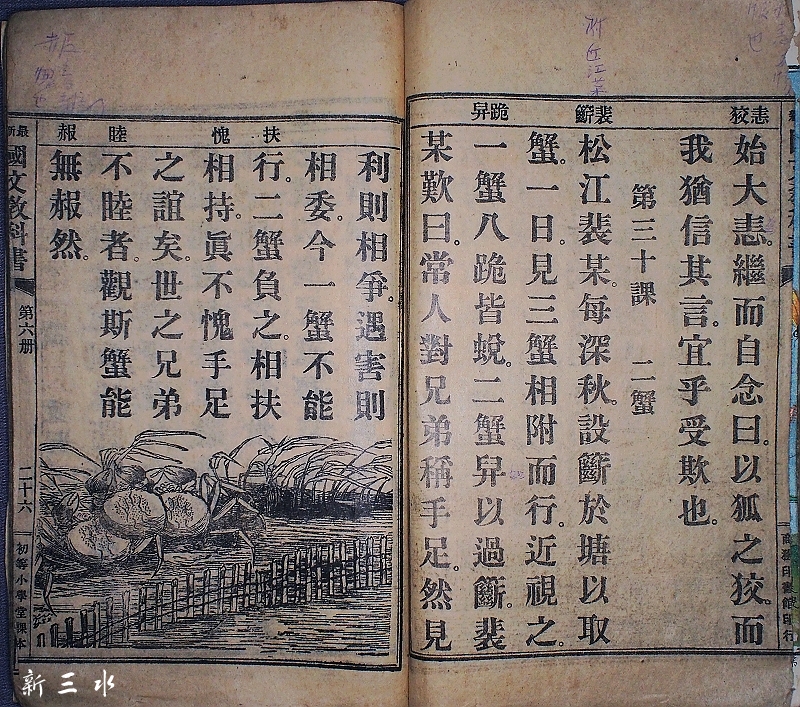 志 狡
始大恚。繼而自念曰。以狐之狡。而
我猶信其言。宜乎受欺也。
第三十課 二蟹
裴 籪
松江裴某。每深秋。設籪於塘以取
蟹。一日。見三蟹相附而行。近視之。
跪 舁
一蟹八跪皆蛻。二蟹舁以過籪。裴
某歎曰。常人對兄弟稱手足。然見
商務印書館印行
附近江某
利則相爭。遇害則
相委。今一蟹不能
扶
行。二蟹負之。相扶
愧
相持。眞不愧手足
之誼矣。世之兄弟
睦
不睦者。觀斯蟹能
赧
無赧然。
最新
國文教科書
第六册
二十六
初等小學堂課本
新三水